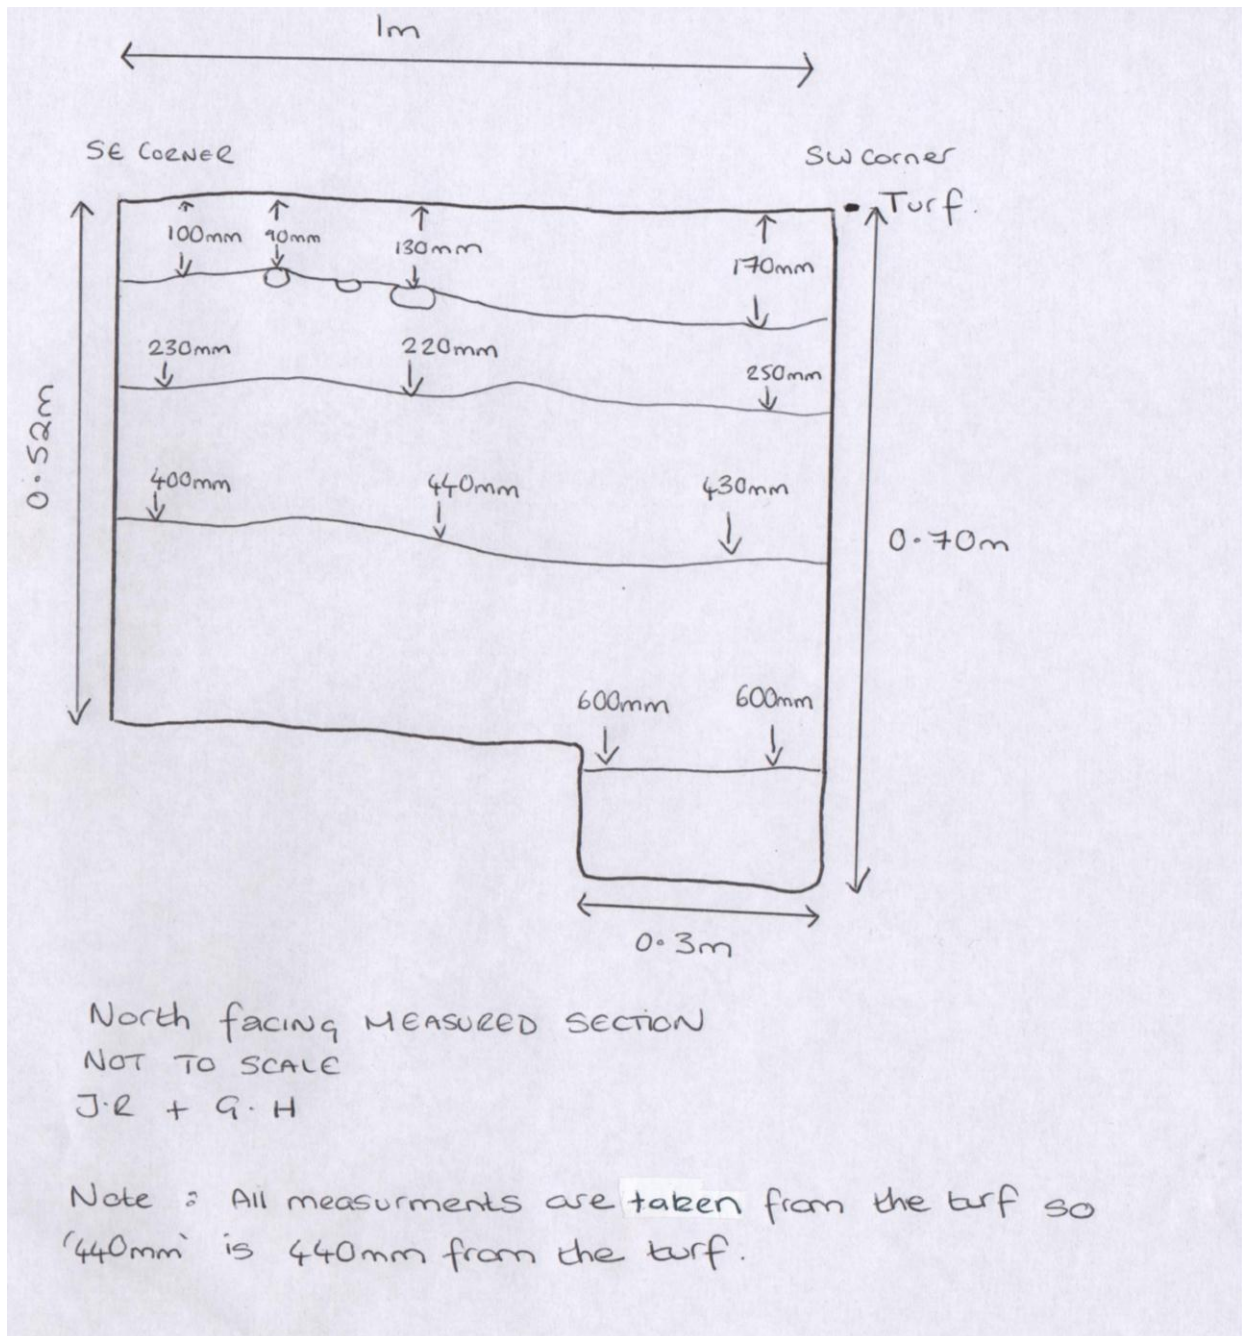 1m
SE CORNER
SW corner
Turf.
100mm
90mm
130mm
170mm
230mm
220mm
250mm
0.52m
400mm
440mm
430mm
0.70m
600mm
600mm
0.3m
North facing MEASURED SECTION
NOT TO SCALE
J.R + G.H
Note : All measurments are taken from the turf so
'440mm' is 440mm from the turf.